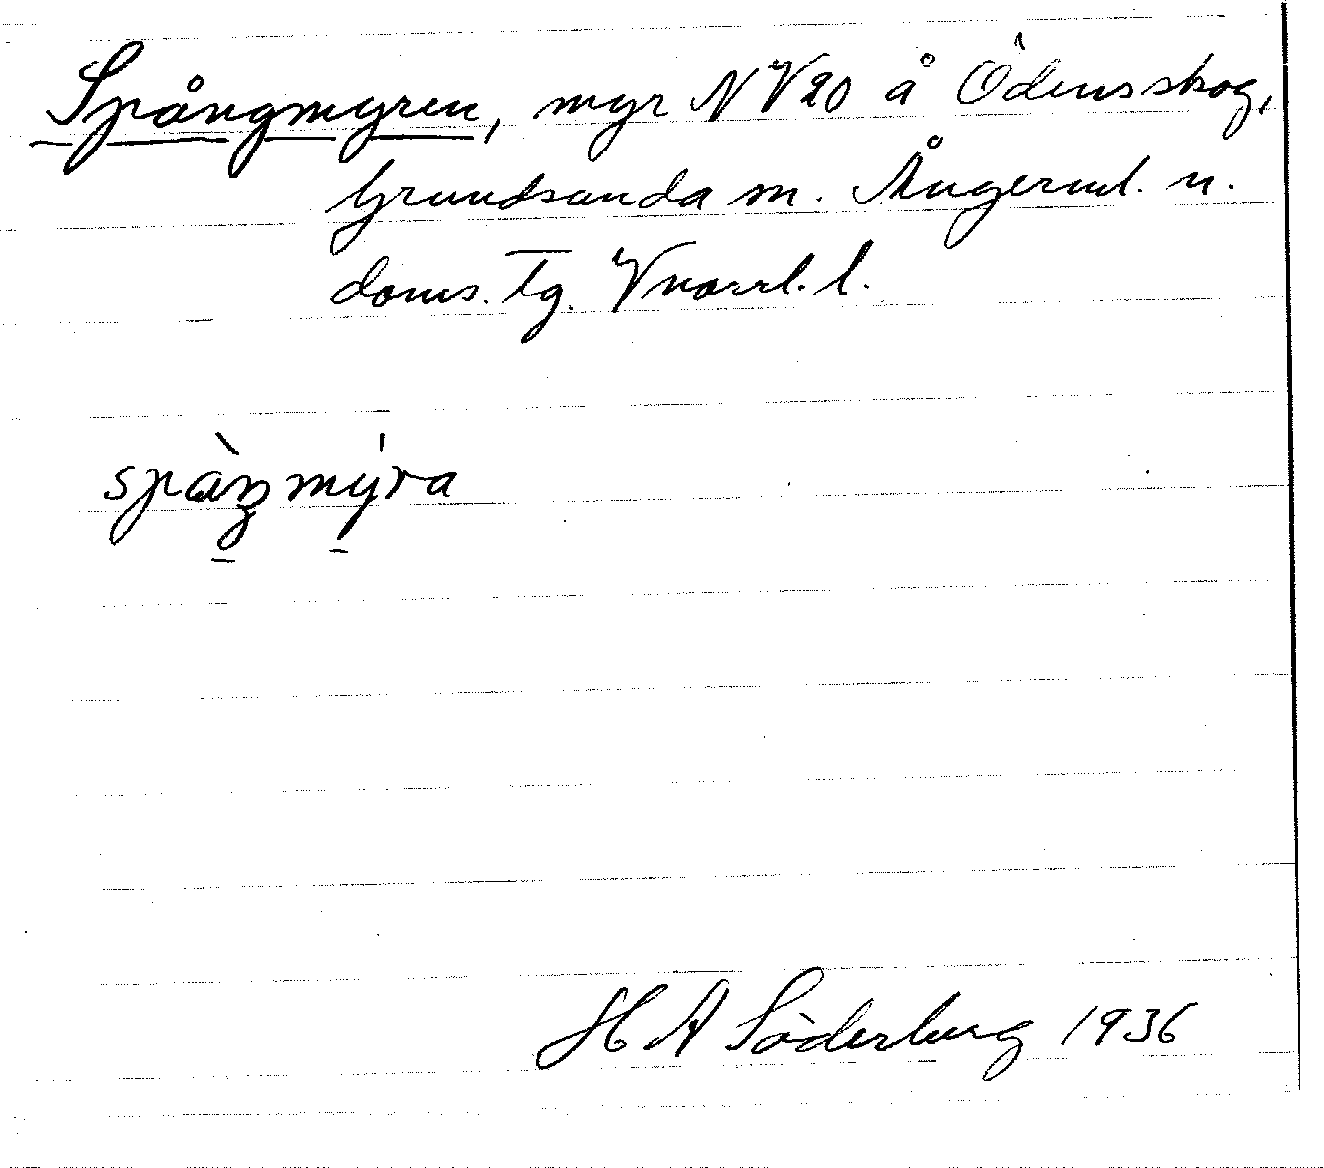 Spångmyren, myr NV20 å Ödensskog,
Grundsunda sn. Ångerml. n.
doms. Tg. Vnorrl. l.
spàŋmýra
H A Söderberg 1936